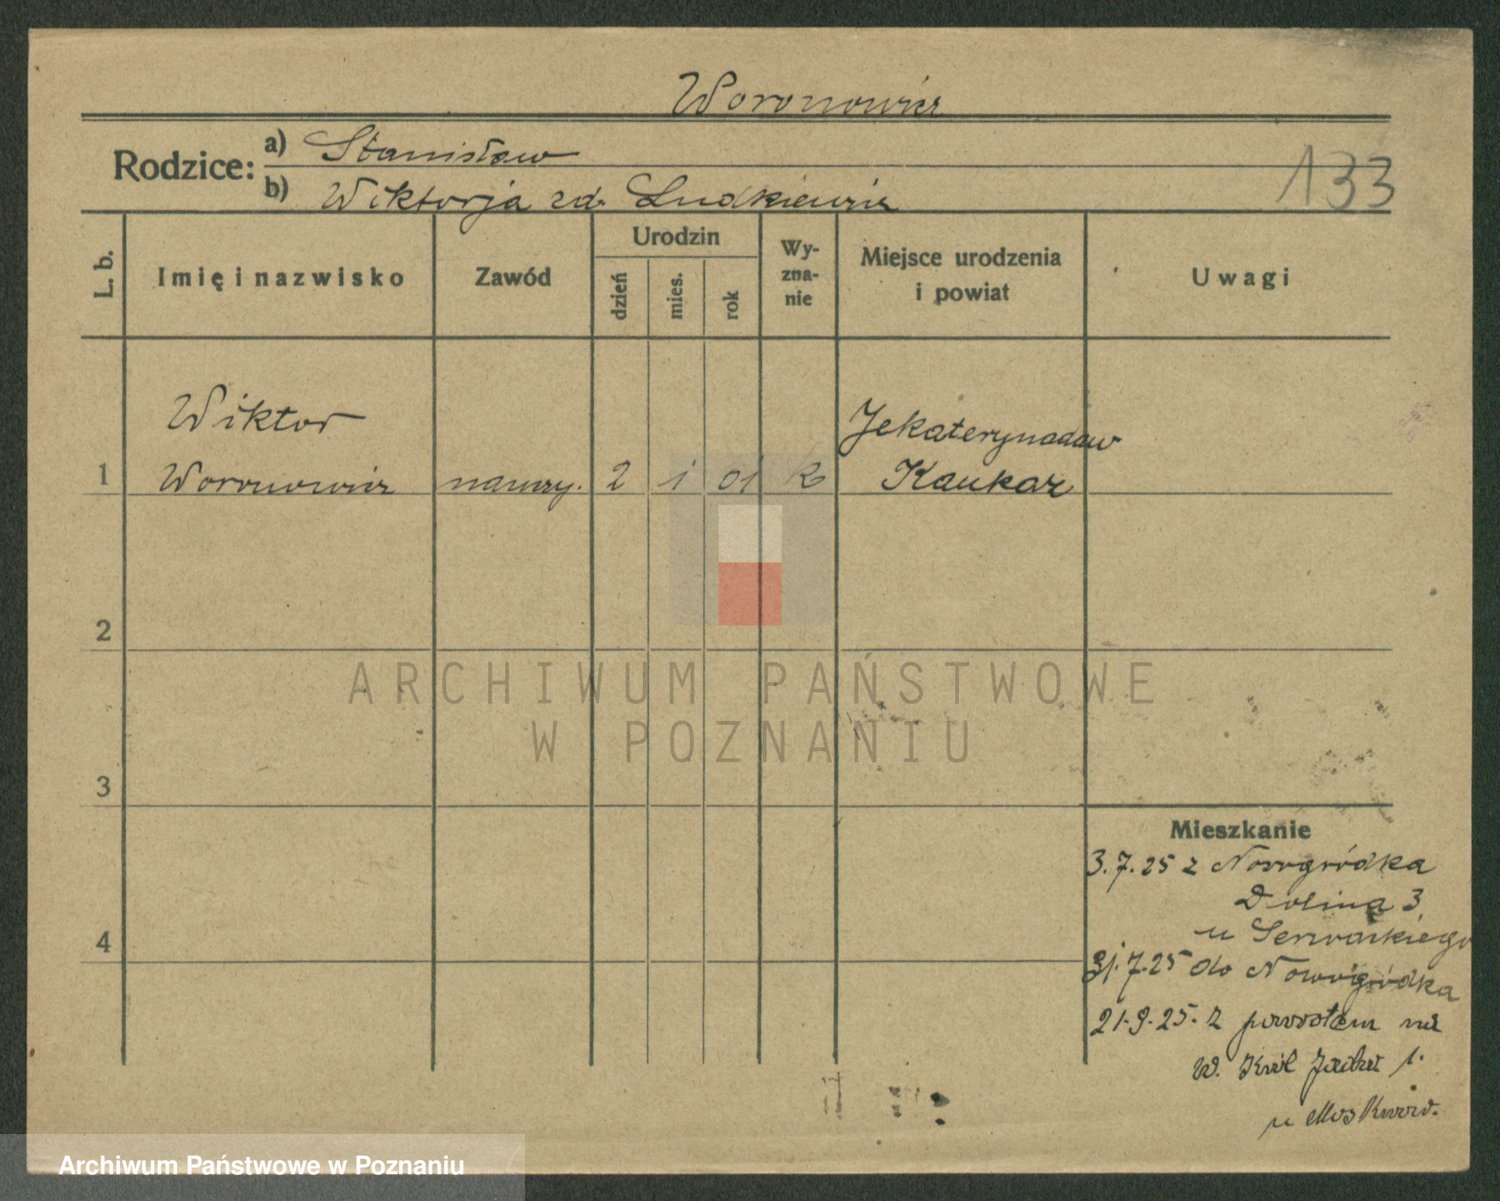 Woronowicz
Rodzice: a) Stanisław
b) Wiktorja zd. Ludkiewicz
133
L. b.
Imię i nazwisko
Zawód
Urodzin
dzień
mies.
rok
Wy-
zna-
nie
Miejsce urodzenia
i powiat
Uwagi
Wiktor
Jekaterynadaw
1 Woronowicz nauczy. 2 1 01 k Kaukaz
2
ARCHIWUM PAŃSTWOWE
W POZNANIU
3
Mieszkanie
3.7.25 z Nowogródka
Dolina 3
u
4
31.7.25 do Nowogródka
21.9.25. z powrotem na
W. Król Jadwi 1.
u
Archiwum Państwowe w Poznaniu